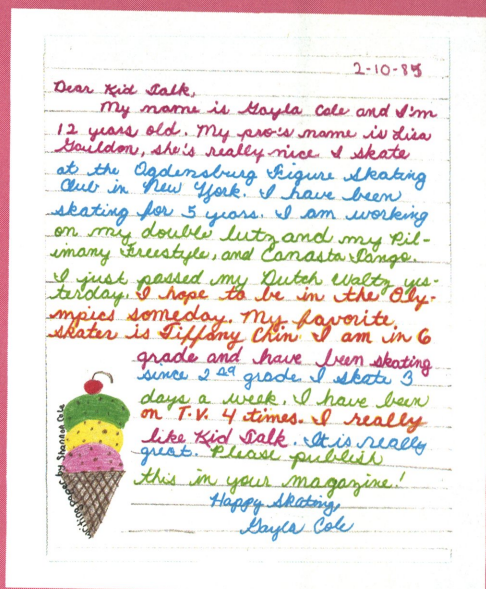 2-10-85
Dear Kid Talk,
My name is Gayla Cole and I'm
12 years old. My pro's name is Lisa
Gauldon, she's really nice. I skate
at the Ogdensburg Figure Skating
Club in New York. I have been
skating for 5 years. I am working
on my double lutz and my Pil-
imany Freestyle, and Canasta Tango.
I just passed my Dutch Waltz yes-
terday. I hope to be in the Oly-
mpics someday. My favorite
skater is Tiffany Chin. I am in 6
grade and have been skating
since 2nd grade. I skate 3
days a week. I have been
on T.V. 4 times. I really
like Kid Talk. It is really
great. Please publish
this in your magazine!
Happy Skating,
Gayla Cole
writing paper by Shannon Cole